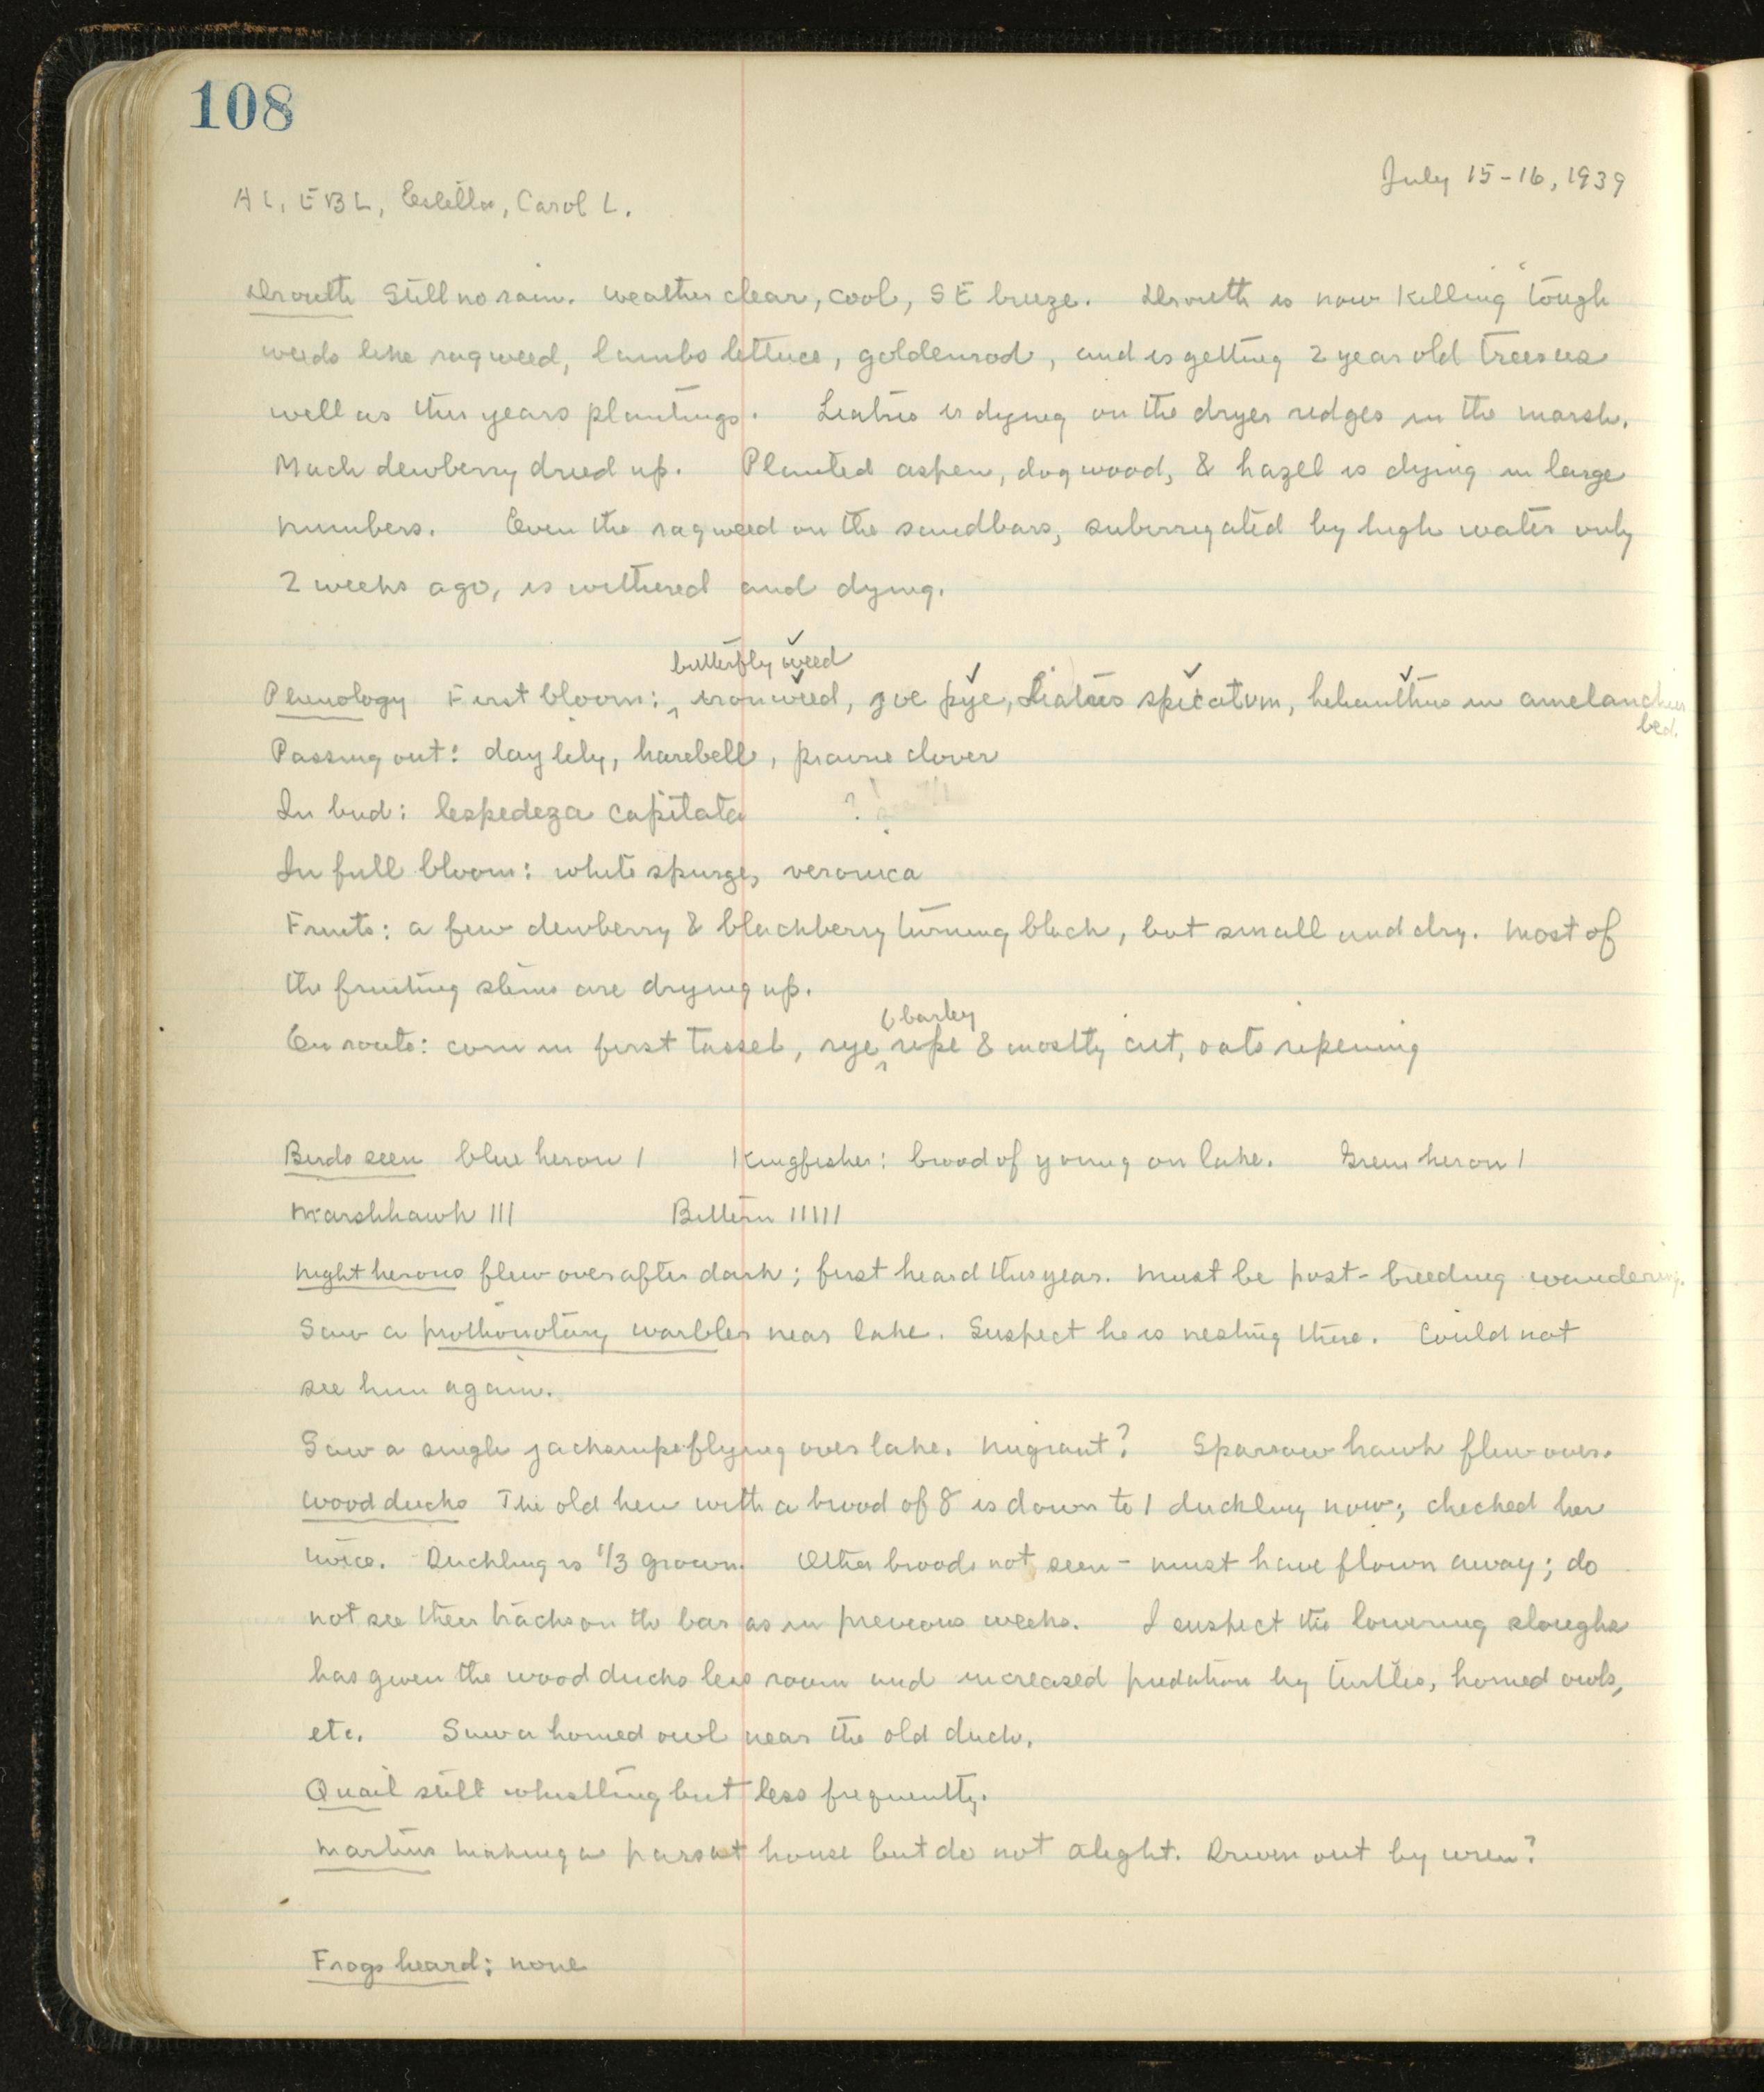 108
July 15-16, 1939
AL, EBL, Estella, Carol L.
Drouth Still no rain. Weather clear, cool, SE breeze. Drouth is now killing tough
weeds like ragweed, lambs lettuce, goldenrod, and is getting 2 year old trees as
well as this years plantings. Liatris is dying on the dryer ridges in the marsh.
Much dewberry dried up. Planted aspen, dogwood, & hazel is dying in large
numbers. Even the ragweed on the sandbars, subirrigated by high water only
2 weeks ago, is withered and dying.
butterfly weed
Phenology First bloom: ironweed, joe pye, Liatris spicatum, helianthus in amelanchier
bed.
Passing out: day lily, harebell, prairie clover
In bud: lespedeza capitata ?
In full bloom: white spurge, veronica
Fruits: a few dewberry & blackberry turning black, but small and dry. Most of
the fruiting stems are drying up.
& barley
En route: corn in first tassel, rye ripe & mostly cut, oats ripening
Birds seen blue heron 1 Kingfisher: brood of young on lake. Green heron 1
Marshhawk 111 Bittern 11111
Night herons flew over after dark; first heard this year. Must be post-breeding wandering.
Saw a prothonotary warbler near lake. Suspect he is nesting there. Could not
see him again.
Saw a single jacksnipe flying over lake. Migrant? Sparrow hawk flew over.
Wood ducks The old hen with a brood of 8 is down to 1 duckling now; checked her
twice. Duckling is 1/3 grown. Other broods not seen - must have flown away; do
not see their tracks on the bar as in previous weeks. I suspect the lowering sloughs
has given the wood ducks less room and increased predation by turtles, horned owls,
etc. Saw a horned owl near the old duck.
Quail still whistling but less frequently.
Martins making a pass at house but do not alight. Driven out by wren?
Frogs heard: none